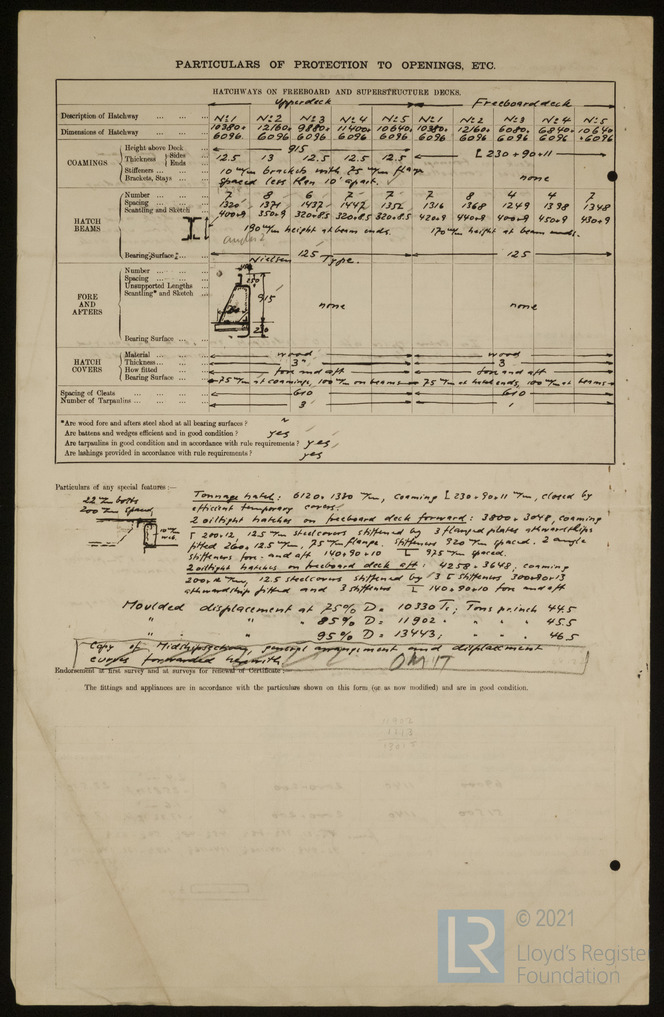 PARTICULARS OF PROTECTION TO OPENINGS, ETC.
HATCHWAYS ON FREEBOARD AND SUPERSTRUCTURE DECKS.
Upperdeck Freeboard deck
Description of Hatchway No 1 No 2 No 3 No 4 No 5 No 1 No 2 No 3 No 4 No 5
Dimensions of Hatchway 10380× 12160× 9880× 11400× 10640× 10380× 12160× 6080× 6840× 10640
6096 6096 6096 6096 6096 6096 6096 6096 6096 ×6096
COAMINGS
Height above Deck 915
Thickness Sides 12.5 13 12.5 12.5 12.5 [ 230×90×11
Ends
Stiffeners 10 m/m brackets with 75 m/m flange
Brackets, Stays spaced less then 10' apart. none
HATCH BEAMS
Number 7 8 6 7 7 7 8 4 4 7
Spacing 1320 1371 1437 1447 1352 1316 1368 1249 1398 1348
Scantling and Sketch 400×9 350×9 320×8.5 320×8.5 320×8.5 420×9 440×9 400×9 450×9 430×9
190 m/m height at beam ends. 170 m/m height at beam ends.
angles?
Bearing Surface 125 125
Nielsen Type.
FORE AND AFTERS
Number
Spacing 250
Unsupported Lengths
Scantling* and Sketch 915
none none
Bearing Surface
HATCH COVERS
Material wood wood
Thickness 3" 3
How fitted fore and aft fore and aft
Bearing Surface 75 m/m at coamings, 100 m/m on beams 75 m/m at hatch ends, 100 m/m at beams
Spacing of Cleats 610 610
Number of Tarpaulins 3 1
*Are wood fore and afters steel shod at all bearing surfaces?
Are battens and wedges efficient and in good condition? yes
Are tarpaulins in good condition and in accordance with rule requirements? yes
Are lashings provided in accordance with rule requirements? yes
Particulars of any special features:—
22 m/m bolts
200 m/m spaced
10 m/m
Tonnage hatch: 6120×1380 m/m, coaming [ 230×90×11 m/m, closed by
efficient temporary covers.
2 oiltight hatches on freeboard deck forward: 3800×3048, coaming
200×12, 12.5 m/m steelcovers stiffened by 3 flanged plates athwartships
fitted 260×12.5 m/m, 75 m/m flange. Stiffeners 920 m/m spaced. 2 angle
stiffeners fore and aft 140×90×10 925 m/m spaced.
2 oiltight hatches on freeboard deck aft: 4258×3648, coaming
200×12 m/m, 12.5 steelcovers stiffened by 3 [ stiffeners 300×90×13
athwartship fitted and 3 stiffeners 140×90×10 fore and aft
Moulded displacement at 75% D = 10330 Ts; Tons pr. inch 44.5
" " 85% D = 11902 " " " 45.5
" " 95% D = 13443; " " " 46.5
Copy of Midshipsection, general arrangement and displacement
curves forwarded herewith.
OMIT
Endorsement at first survey and at surveys for renewal of Certificate:
The fittings and appliances are in accordance with the particulars shown on this form (or as now modified) and are in good condition.
LR
© 2021
Lloyd's Register
Foundation